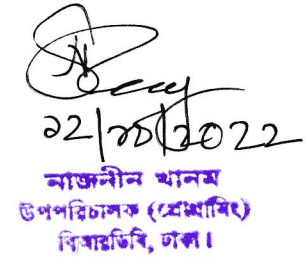 ২২/১০/২০২২
নাজনীন খানম
উপপরিচালক (প্রোগ্রামিং)
বিআরডিবি, ঢাকা।